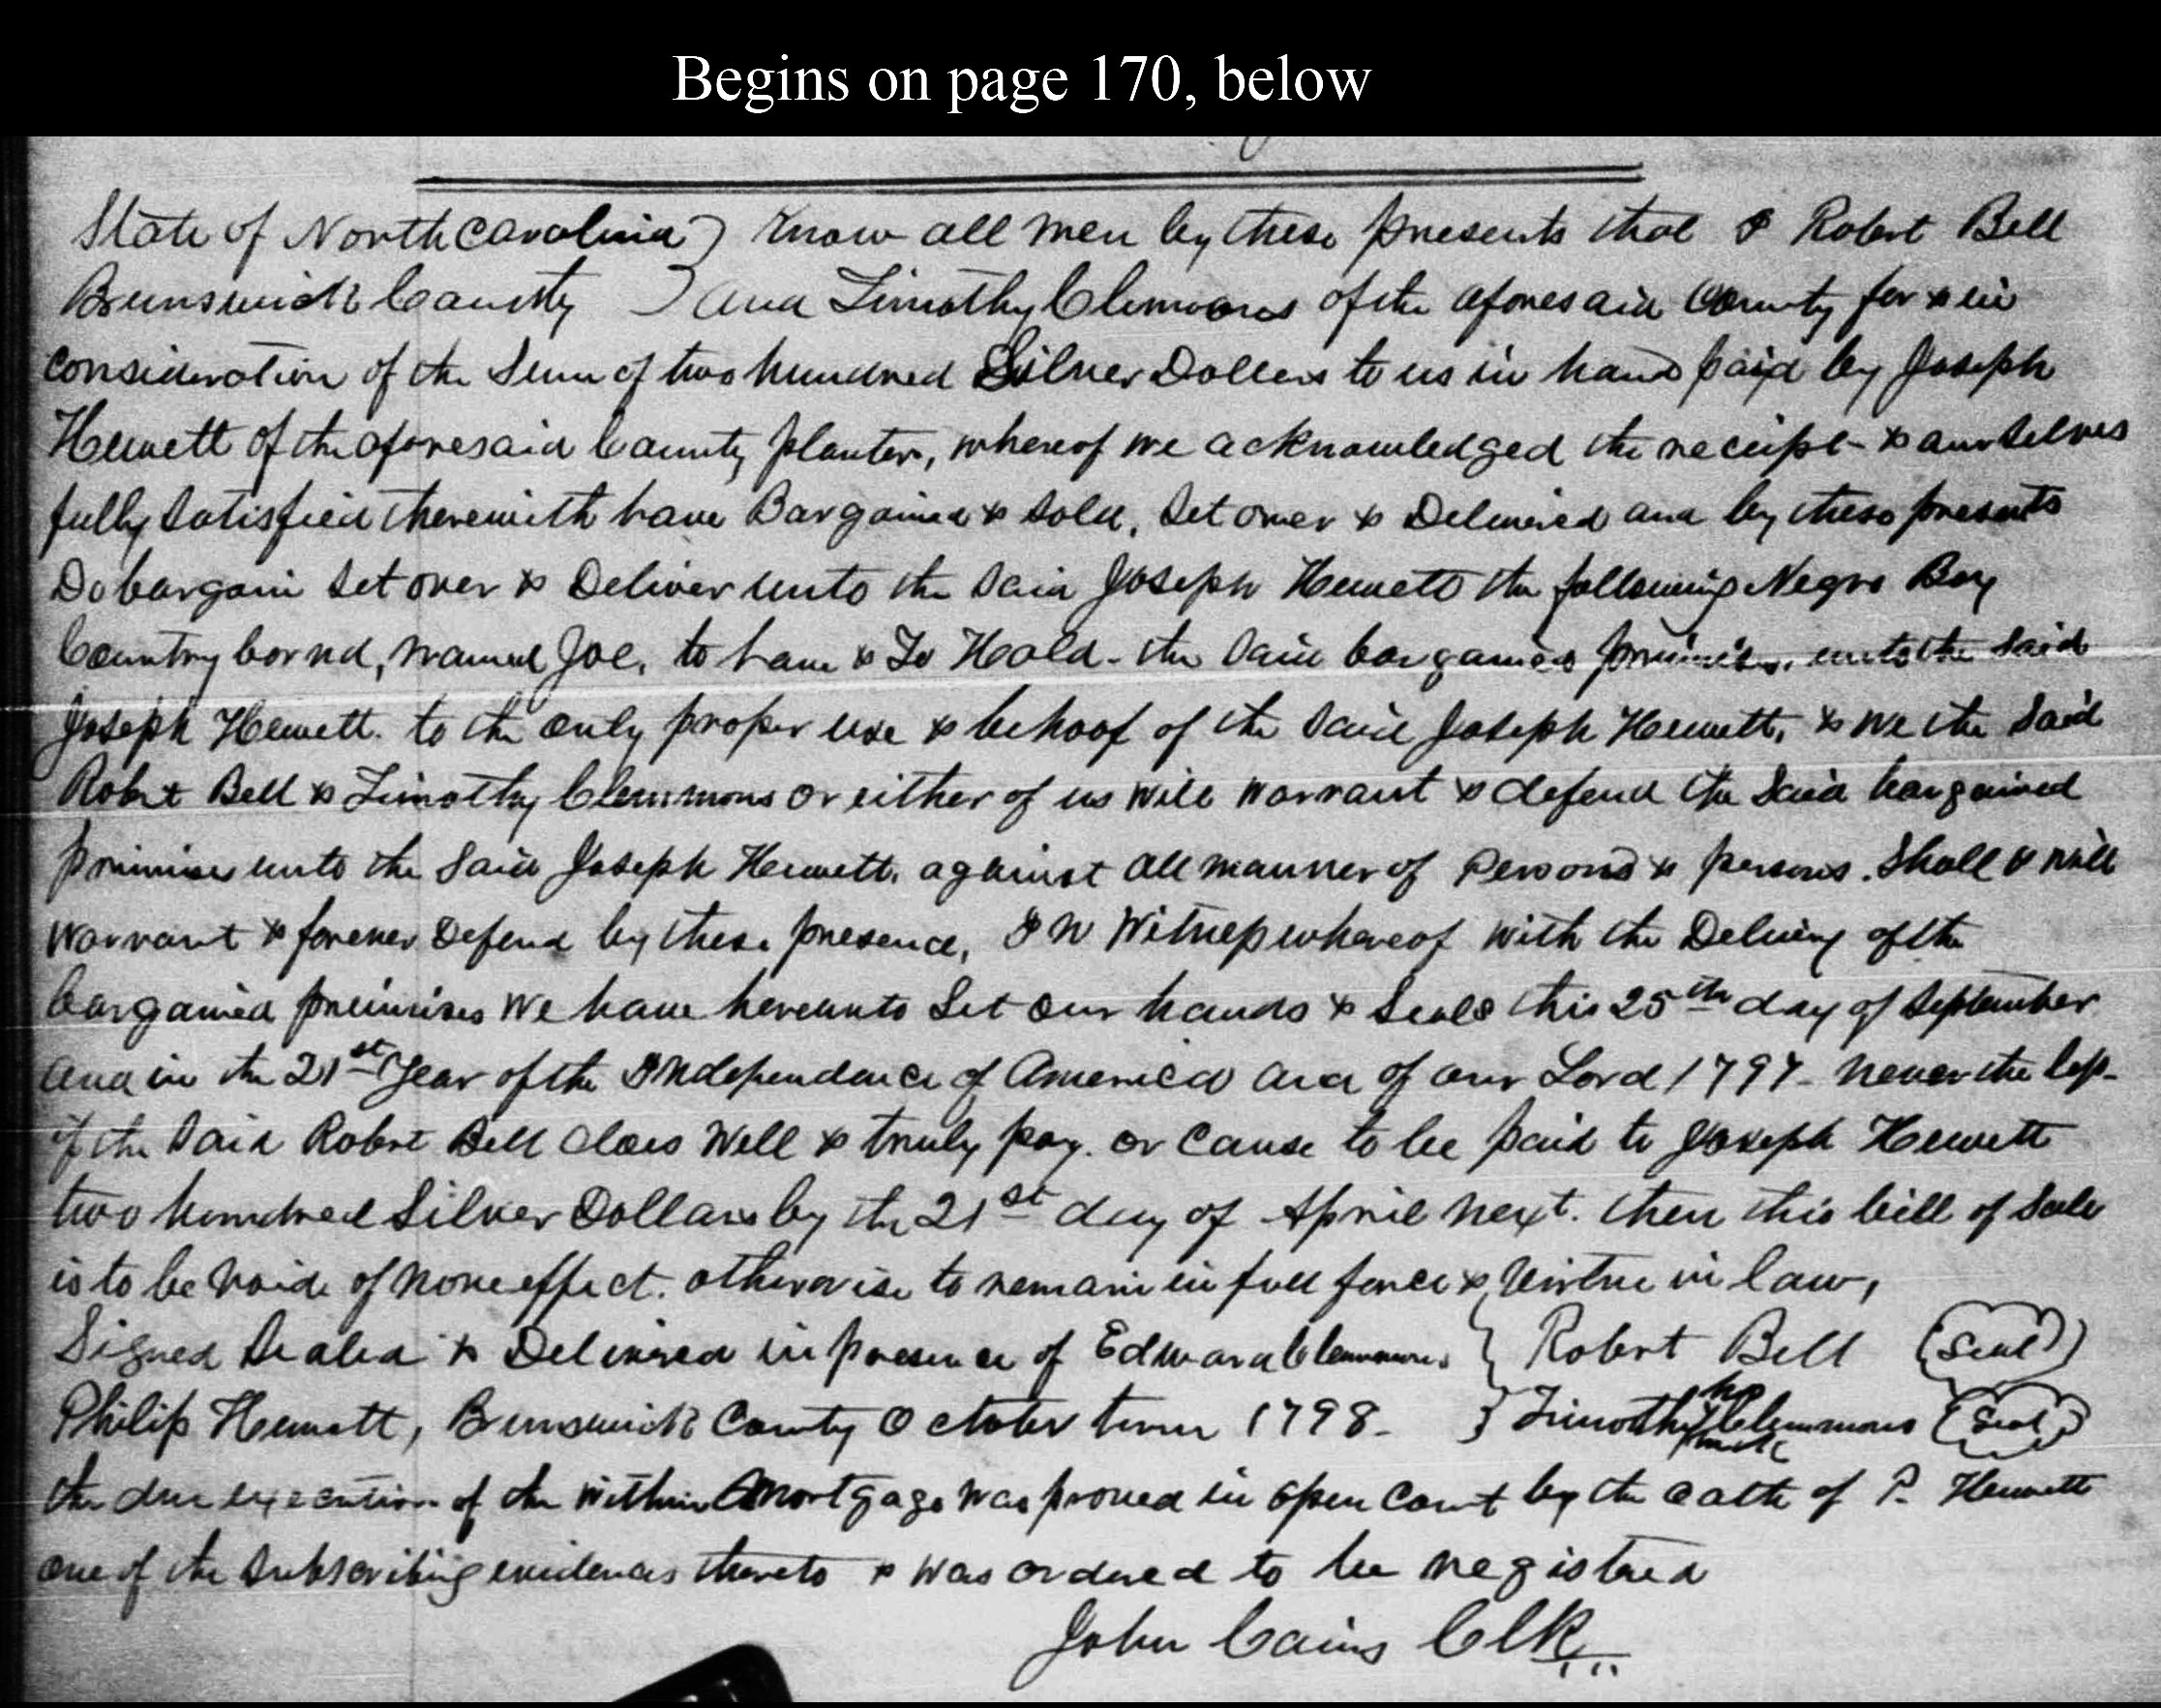 Begins on page 170, below
State of North Carolina ) Know all men by these presents that I Robert Bell
Brunswick County ) and Timothy Clemmons of the aforesaid County for & in
consideration of the Sum of two hundred Silver Dollers to us in hand paid by Joseph
Hewett of the aforesaid County planter, whereof we acknowledged the receipt - & ourselves
fully Satisfied therewith have Bargained & sold, Set over & Delivered and by these presents
Do bargain Set over & Deliver unto the Said Joseph Hewett the following Negro Boy
Country bornd, named Joe, to have & To Hold - the Said bargained premises, unto the Said
Joseph Hewett. to the only proper use & behoof of the Said Joseph Hewett, & we the Said
Robert Bell & Timothy Clemmons or either of us will warrant & defend the Said bargained
primises unto the Said Joseph Hewett. against all manner of Persons & persons. Shall & will
warrant & forever Defend by these presence, In Witness whereof with the Delivery of the
bargained premises We have hereunto Set our hands & Seals this 25th day of September
and in the 21st Year of the Independance of America and of our Lord 1797 - never the less -
if the Said Robert Bell does Well & truly pay. or Cause to be paid to Joseph Hewett
two hundred Silver Dollars by the 21st day of April next. then this bill of Sale
is to be void of none effect. otherwise to remain in full force & Virtue in law,
Signed Sealed & Delivered in presence of Edward Clemmons } Robert Bell (Seal)
Philip Hewett, Brunswick County October term 1798 - } Timothy his mark Clemmons (Seal)
the due execution of the within Mortgage was proved in open Court by the oath of P. Hewett
one of the Subscribing evidences thereto & was ordered to be registered
John Cains Clk